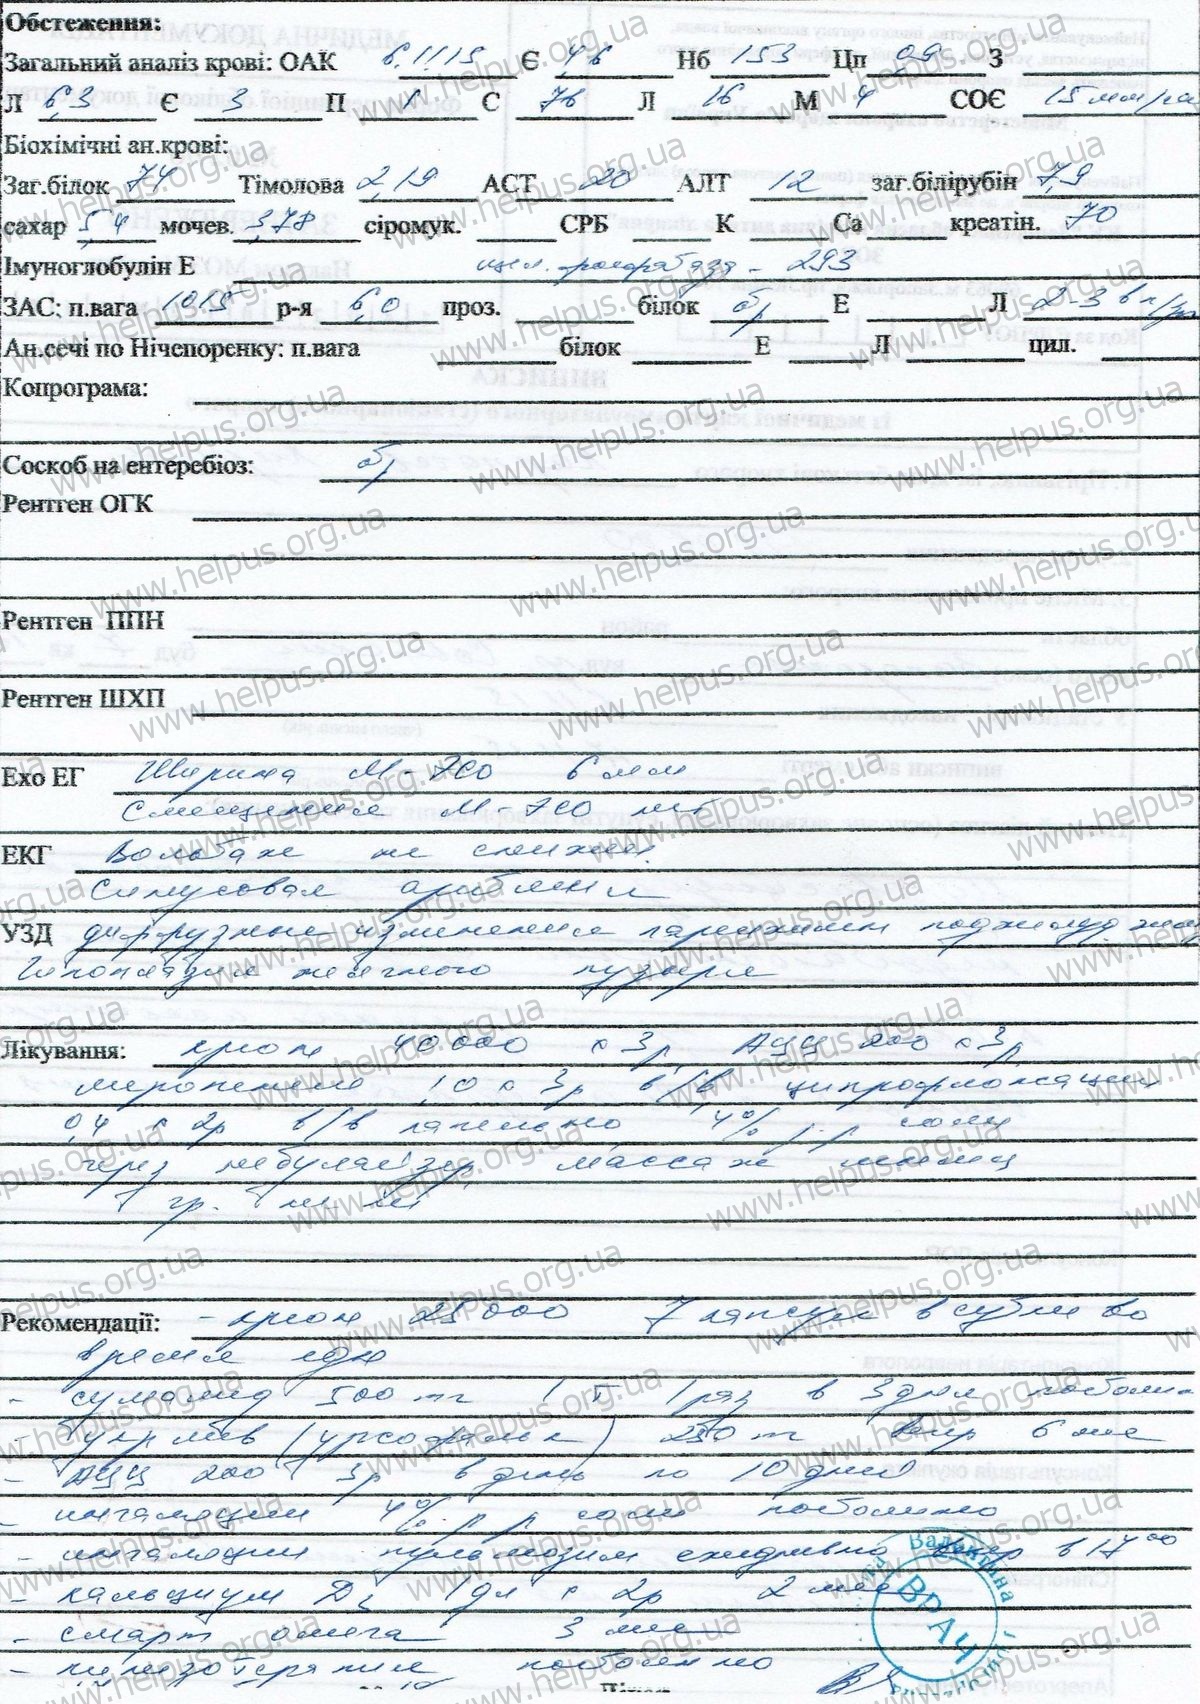 Обстеження:
Загальний аналіз крові: ОАК 6.11.15 Є 4,6 Нб 153 Цп 0,9 З
Л 6,3 Є 3 П 1 С 76 Л 16 М 4 СОЄ 15 мм/ч
Біохімічні ан.крові:
Заг.білок 74 Тімолова 2,19 АСТ 20 АЛТ 12 заг.білірубін 7,9
сахар 5,4 мочев. 3,78 сіромук. СРБ К Са креатін. 70
Імуноглобулін Е щел. фосфатаза - 293
ЗАС: п.вага 1015 р-я 6,0 проз. білок бр Е Л 2-3 в п/зр
Ан.сечі по Нічепоренку: п.вага білок Е Л цил.
Копрограма:
Соскоб на ентеребіоз: бр
Рентген ОГК
Рентген ППН
Рентген ШХП
Ехо ЕГ Ширина М-эхо 6 мм
Смещения М-эхо нет
ЕКГ Вольтаж не снижен.
Синусовая аритмия
УЗД диффузные изменения паренхимы поджелуд. жел
Гипоплазия желчного пузыря
Лікування: креон 40 000 х 3р АЦЦ 200 х 3р
меропенем 1,0 х 3р в/в ципрофлоксацин
0,4 х 2р в/в капельно 4% р-р соли
через небулайзер массаж мышц
гр. кл-ки
Рекомендації: - креон 25 000 7 капсул в сутки во
время еды
- сумамед 500 мг 1 т 1 раз в 3 дня постоянно
- укрлив (урсофальк) 250 мг 6 мес
- АЦЦ 200 3р в день по 10 дней
- ингаляции 4% р-р соли постоянно
- ингаляции пульмозим ежедневно в 17⁰⁰
- кальциум Д₃ х 2р 2 мес
- смарт омега 3 мес
- кинезотерапия постоянно
Валентина
ВРАЧ
www.helpus.org.ua